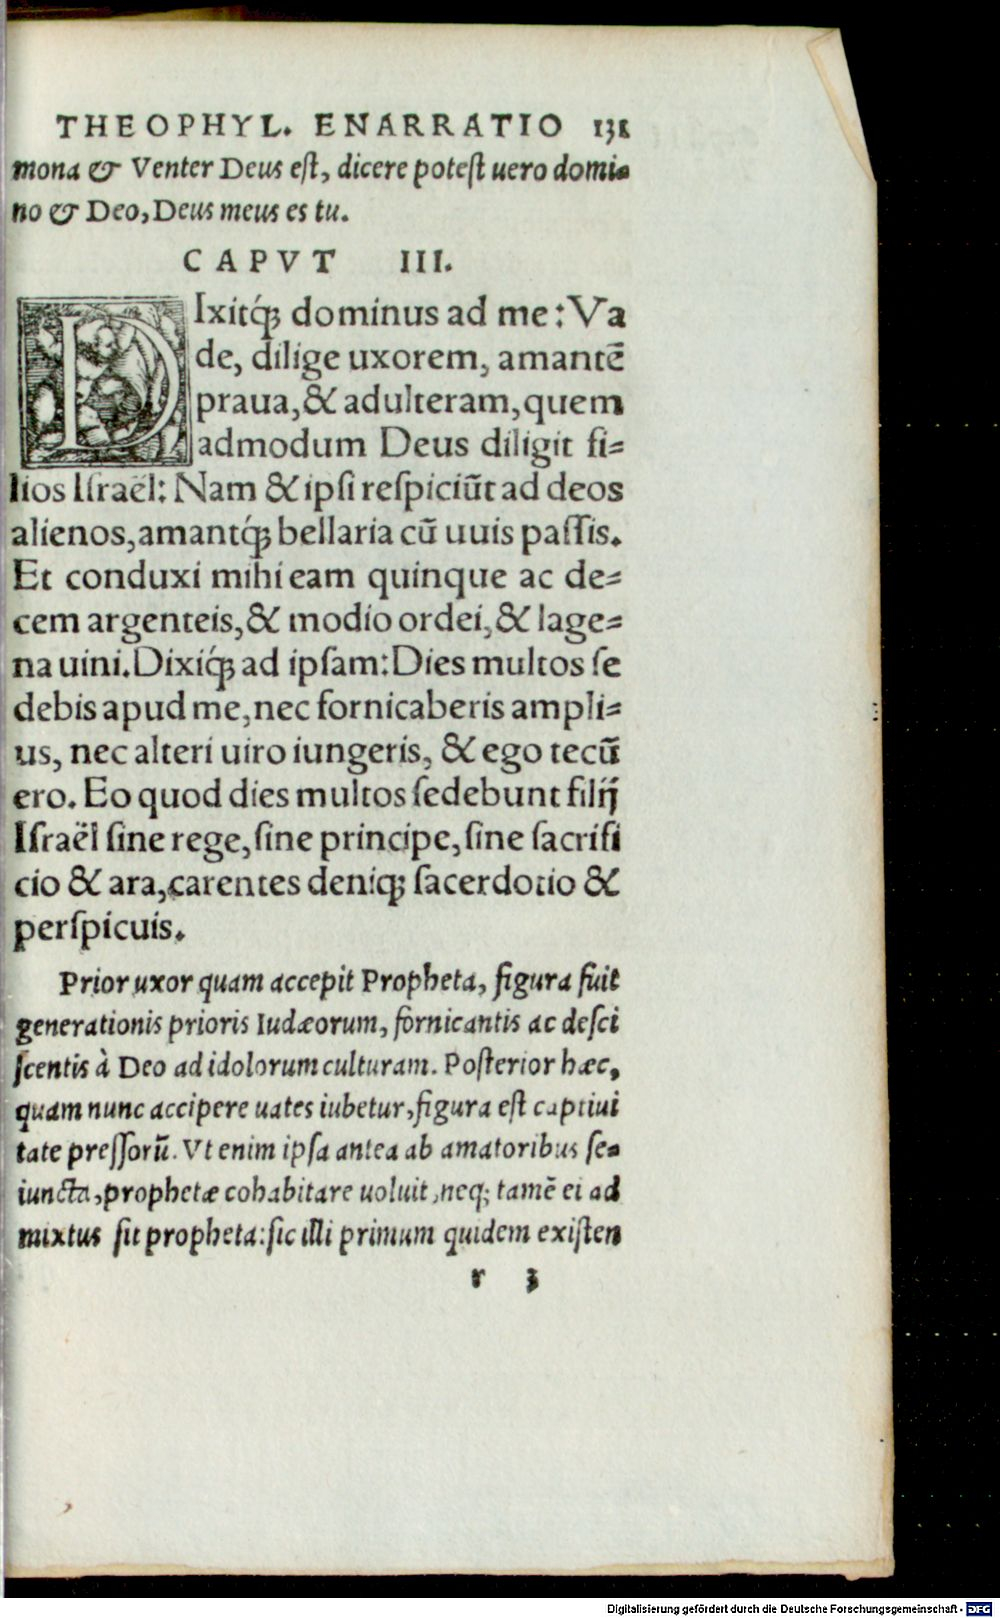 THEOPHYL. ENARRATIO 131
mona & Venter Deus est, dicere potest uero domi-
no & Deo, Deus meus es tu.
CAPVT III.
DIxitq́; dominus ad me: Va
de, dilige uxorem, amantē
praua, & adulteram, quem
admodum Deus diligit fi=
lios Israël: Nam & ipsi respiciūt ad deos
alienos, amantq́; bellaria cū uuis passis.
Et conduxi mihi eam quinque ac de=
cem argenteis, & modio ordei, & lage=
na uini. Dixiq́; ad ipsam: Dies multos se
debis apud me, nec fornicaberis ampli=
us, nec alteri uiro iungeris, & ego tecū
ero. Eo quod dies multos sedebunt filij
Israël sine rege, sine principe, sine sacrifi
cio & ara, carentes deniq; sacerdotio &
perspicuis.
Prior uxor quam accepit Propheta, figura fuit
generationis prioris Iudæorum, fornicantis ac desci
scentis à Deo ad idolorum culturam. Posterior hæc,
quam nunc accipere uates iubetur, figura est captiui
tate pressorū. Vt enim ipsa antea ab amatoribus se-
iuncta, prophetæ cohabitare uoluit, neq; tamē ei ad
mixtus sit propheta: sic illi primum quidem existen
r 3
Digitalisierung gefördert durch die Deutsche Forschungsgemeinschaft - DFG